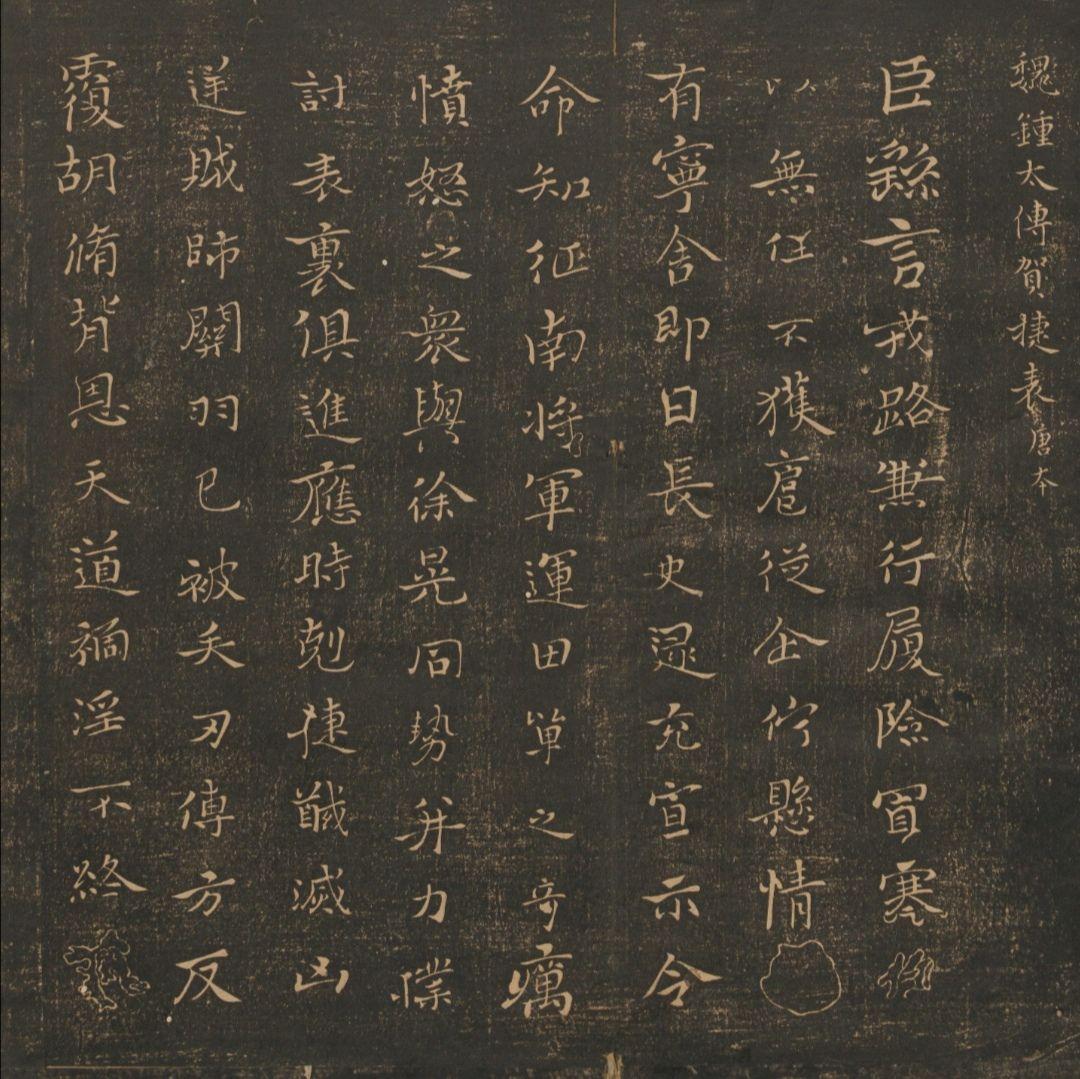 魏鍾太傅賀捷表唐本
臣繇言戎路兼行履險冒寒臣
以無任不獲扈從企佇懸情
有寧舍即日長史逯充宣示令
命知征南將軍運田單之奇厲
憤怒之眾與徐晃同勢并力撲
討表裏俱進應時剋捷馘滅凶
逆賊帥關羽已被矢刃傅方反
覆胡脩背恩天道禍淫不終